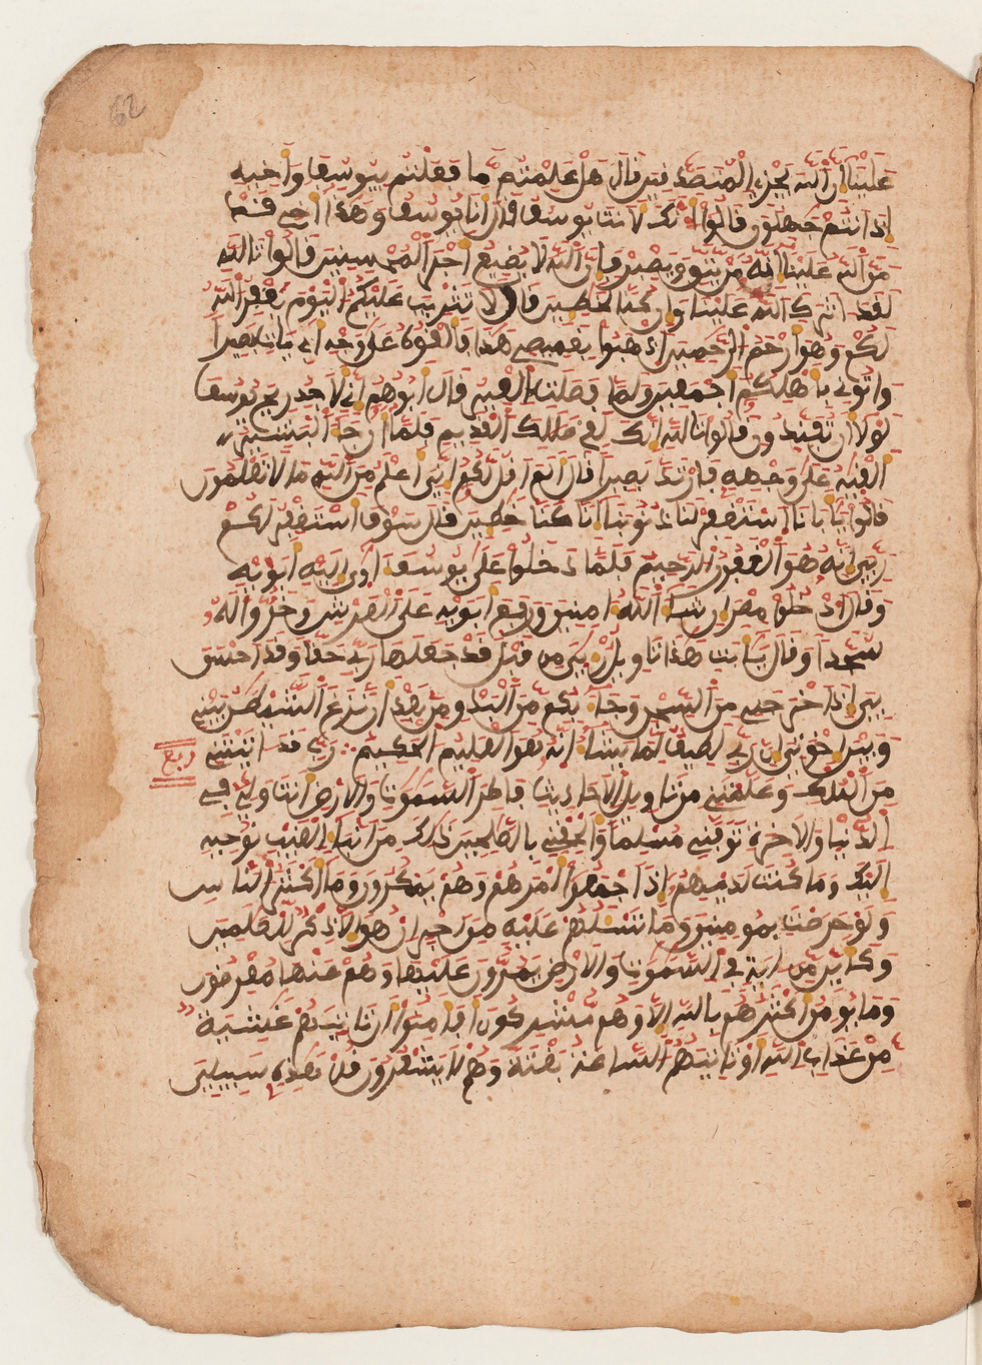 62
علينا إن الله يجزي المتصدقين قال هل علمتم ما فعلتم بيوسف وأخيه
إذ أنتم جهلون قالوا أنك لأنت يوسف قال أنا يوسف وهذا أخي قد
من الله علينا إنه من يتق ويصبر فإن الله لا يضيع أجر المحسنين قالوا تالله
لقد اثرك الله علينا وإن كنا لخطين قال لا تثريب عليكم اليوم يغفر الله
لكم وهو أرحم الرحمين اذهبوا بقميصي هذا فألقوه على وجه أبي يات بصيرا
واتوني بأهلكم أجمعين ولما فصلت العير قال أبوهم إني لأجد ريح يوسف
لولا أن تفندون قالوا تالله إنك لفي ضللك القديم فلما أن جاء البشير
ألقيه على وجهه فارتد بصيرا قال ألم أقل لكم إني أعلم من الله ما لا تعلمون
قالوا يأبانا استغفر لنا ذنوبنا إنا كنا خطين قال سوف أستغفر لكم
ربي إنه هو الغفور الرحيم فلما دخلوا على يوسف أوى إليه أبويه
وقال ادخلوا مصر إن شاء الله امنين ورفع أبويه على العرش وخروا له
سجدا وقال يأبت هذا تاويل رءيي من قبل قد جعلها ربي حقا وقد أحسن
بي إذ أخرجني من السجن وجاء بكم من البدو من بعد أن نزغ الشيطن بيني
وبين إخوتي إن ربي لطيف لما يشاء إنه هو العليم الحكيم رب قد اتيتني
ربع
من الملك وعلمتني من تاويل الأحاديث فاطر السموت والأرض أنت ولي في
الدنيا والأخرة توفني مسلما وألحقني بالصلحين ذلك من أنباء الغيب نوحيه
إليك وما كنت لديهم إذ أجمعوا أمرهم وهم يمكرون وما أكثر الناس
ولو حرصت بمومنين وما تسئلهم عليه من أجر إن هو إلا ذكر للعلمين
وكأين من اية في السموت والأرض يمرون عليها وهم عنها معرضون
وما يومن أكثرهم بالله إلا وهم مشركون أفامنوا أن تاتيهم غشية
من عذاب الله أو تاتيهم الساعة بغتة وهم لا يشعرون قل هذه سبيلي